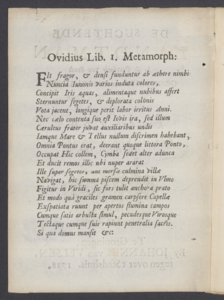 Ovidius Lib. 1. Metamorph:
Fit fragor, & densi funduntur ab æthere nimbi
Nuncia Iunonis varios induta colores,
Concipit Iris aquas, alimentaque nubibus affert
Sternuntur segetes, & deplorata coloni
Vota jacent, longique perit labor irritus Anni.
Nec cælo contenta suo est Iovis ira, sed illum
Cæruleus frater juvat auxiliaribus undis
Iamque Mare & Tellus nullum discrimen habebant,
Omnia Pontus erat, deerant quoque littora Ponto,
Occupat Hic collem, Cymba sedet alter adunca
Et ducit remos illic ubi nuper ararat
Ille super segetes, aut mersæ culmina villæ
Navigat, hic summa piscem deprendit in Ulmo
Figitur in Viridi, sic fors tulit anchora prato
Et modo quà graciles gramen carpsere Capellæ
Exspatiata ruunt per apertos flumina campos
Cumque satis arbusta simul, pecudesque Virosque
Tectaque cumque suis rapiunt penetralia sacris.
Si qua domus mansit &c: